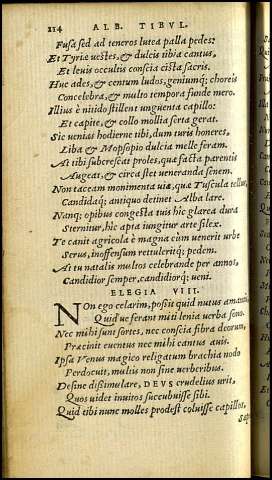 214 ALB. TIBVL.
Fusa sed ad teneros lutea palla pedes:
Et Tyriæ uestes, & dulcis tibia cantus,
Et leuis occultis conscia cista sacris.
Huc ades, & centum ludos, geniumq; choreis
Concelebra, & multo tempora funde mero.
Illius è nitido stillent unguenta capillo:
Et capite, & collo mollia serta gerat.
Sic uenias hodierne tibi, dum turis honores,
Liba & Mopsopio dulcia melle feram.
At tibi subcrescat proles, quæ facta parentis
Augeat, & circa stet ueneranda senem.
Non taceam monimenta uiæ, quæ Tuscula tellus,
Candidaq; antiquo detinet Alba lare.
Nanq; opibus congesta tuis hic glarea dura
Sternitur, hic apta iungitur arte silex.
Te canit agricola è magna cùm uenerit urbe
Serus, inoffensum rettuleritq; pedem.
At tu natalis multos celebrande per annos,
Candidior semper, candidiorq; ueni.
ELEGIA VIII.
NOn ego celarim, possit quid nutus amantis,
Quid ue ferant miti lenia uerba sono.
Nec mihi sunt sortes, nec conscia fibra deorum,
Præcinit euentus nec mihi cantus auis.
Ipsa Venus magico religatum brachia nodo
Perdocuit, multis non sine uerberibus.
Desine dißimulare, DEVS crudelius urit,
Quos uidet inuitos succubuisse sibi.
Quid tibi nunc molles prodest coluisse capillos,